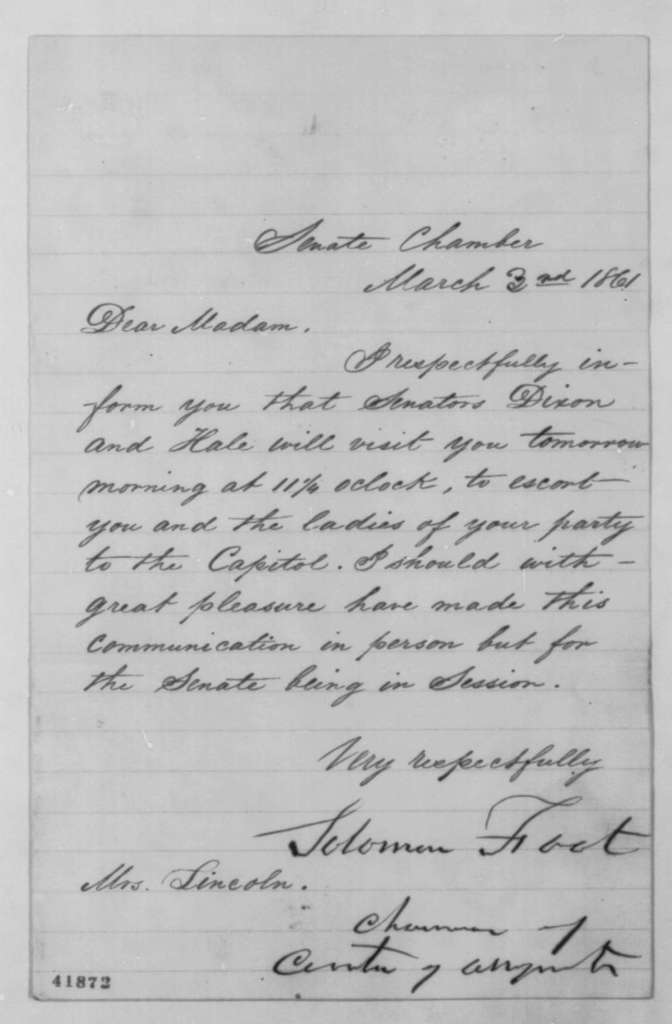 Senate Chamber
March 3rd 1861
Dear Madam.
I respectfully in-
form you that Senators Dixon
and Hale will visit you tomorrow
morning at 11¼ oclock, to escort
you and the ladies of your party
to the Capitol. I should with-
great pleasure have made this
communication in person but for
the Senate being in Session.
Very respectfully
Solomon Foot
Mrs. Lincoln.
Chairman of
of
41872